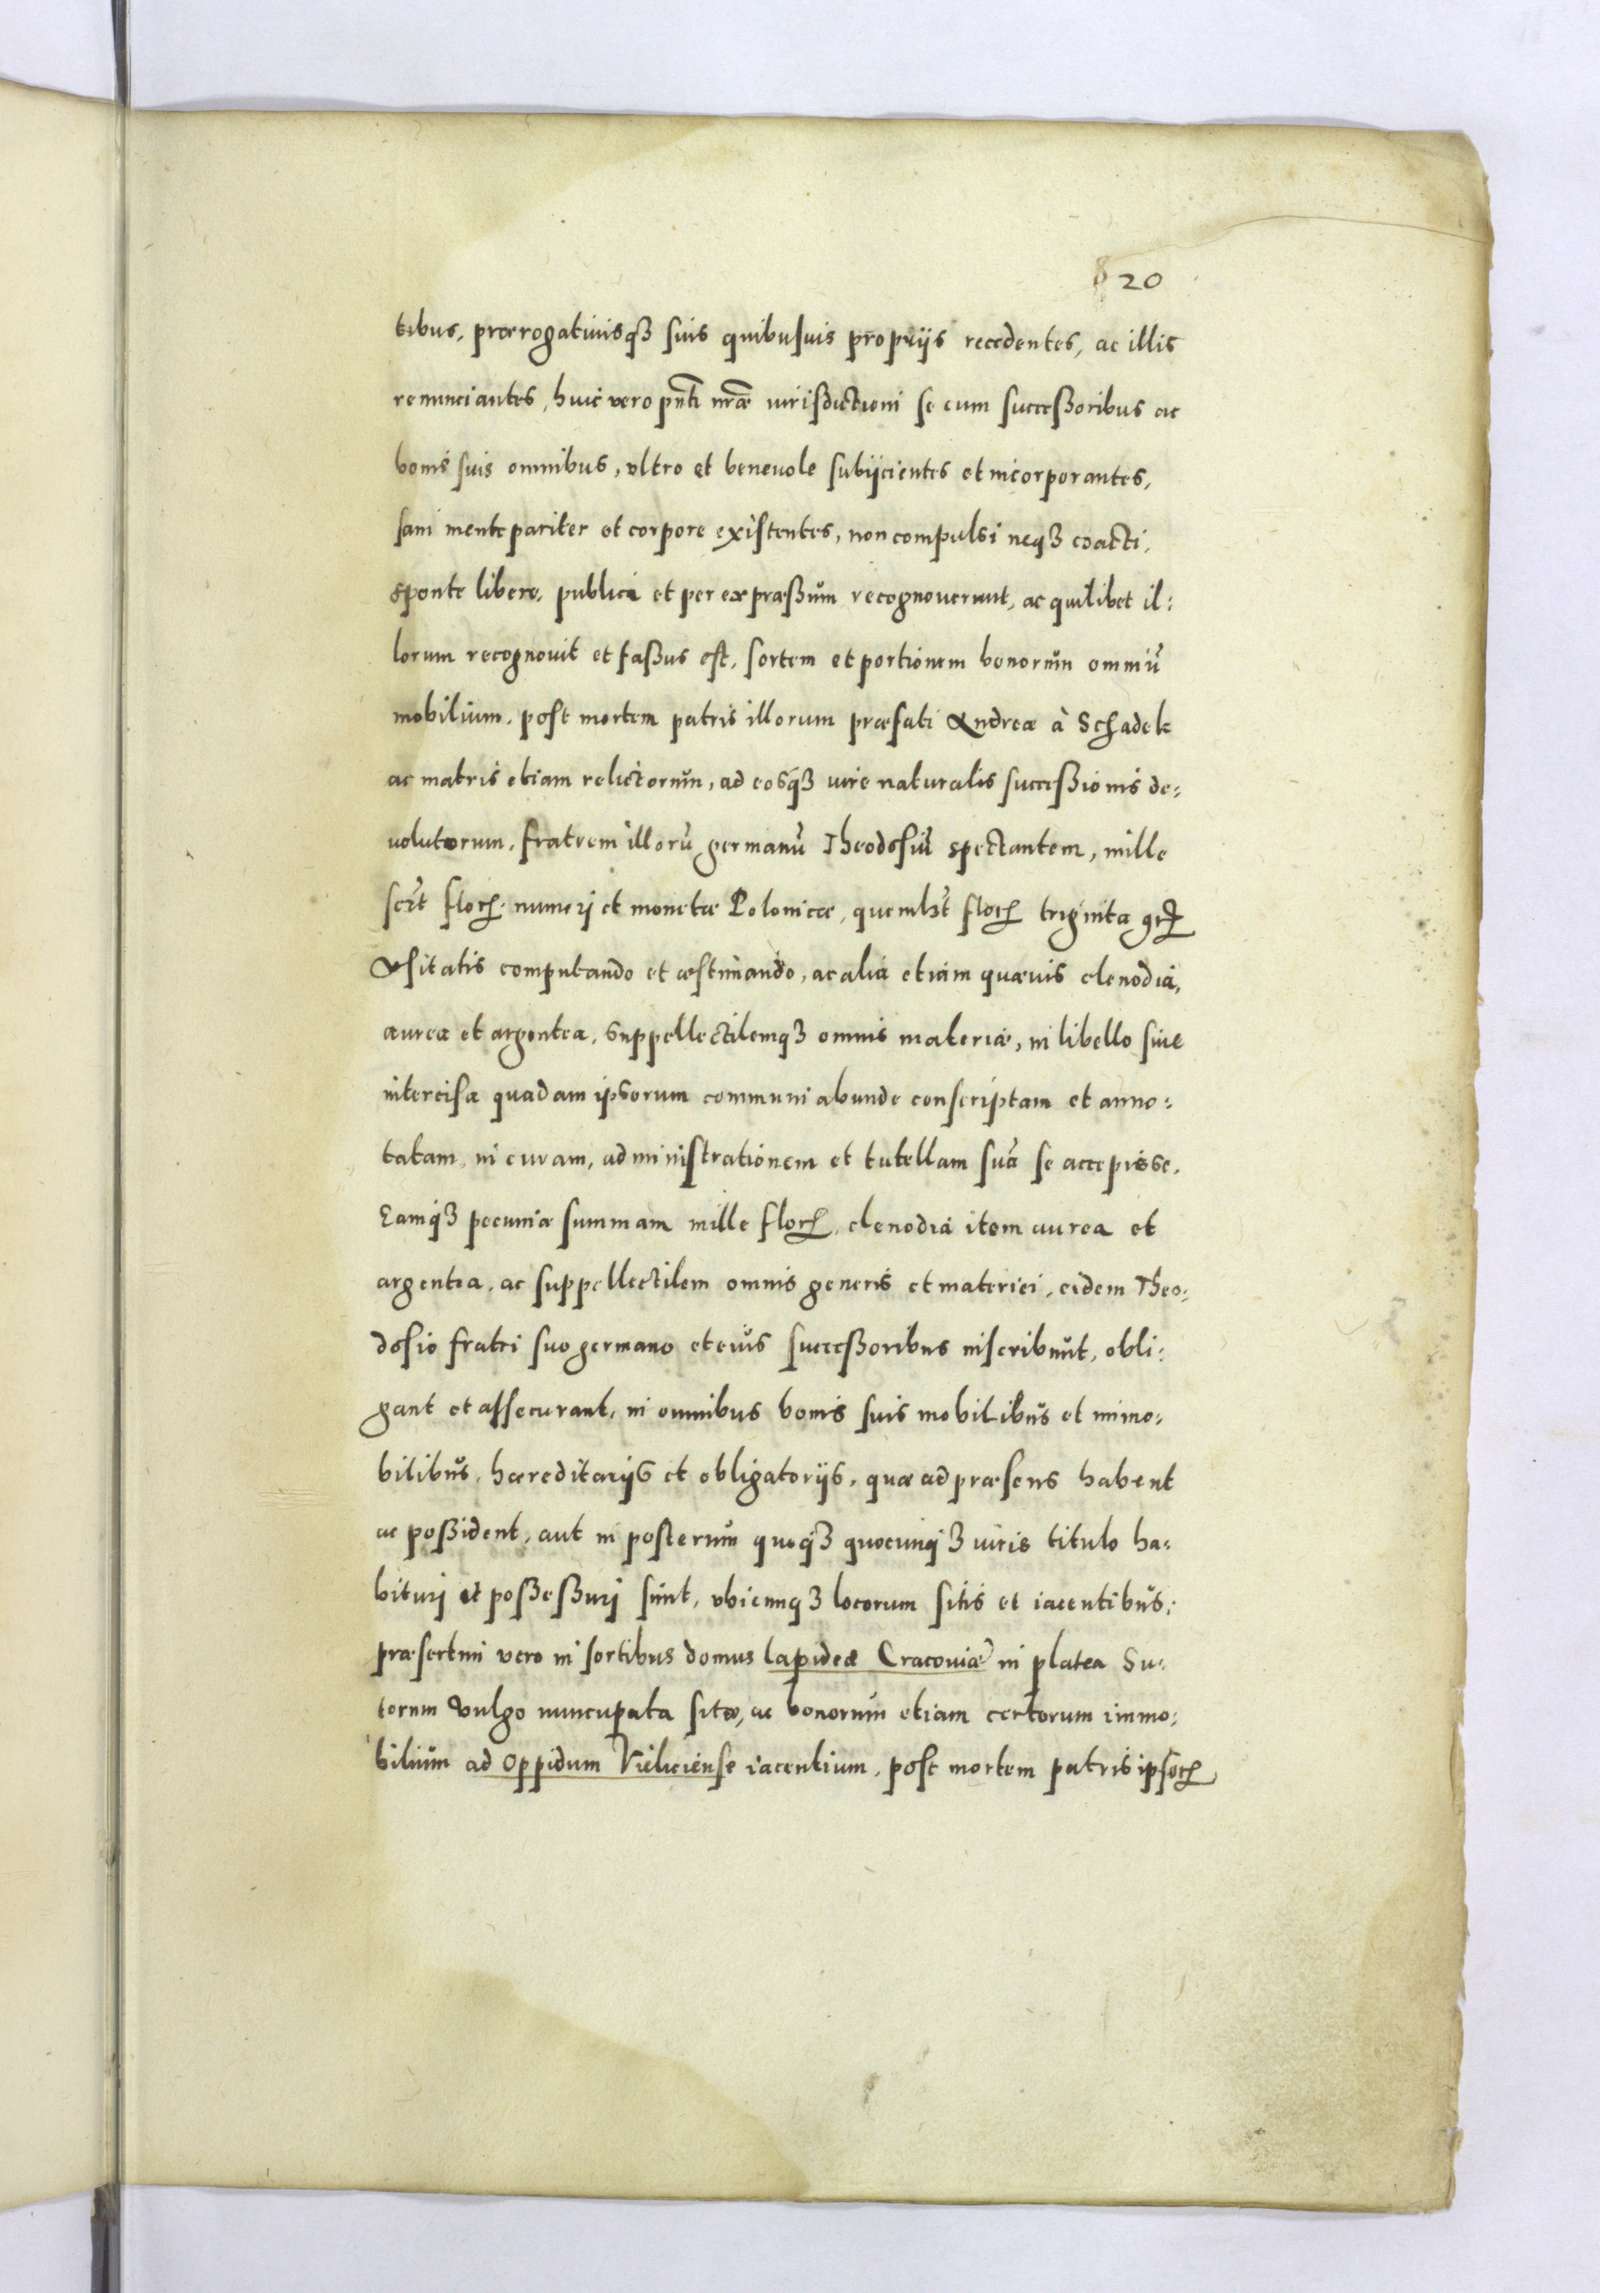 20
tibus, prærogatiuisqȝ suis quibusuis proprijs recedentes, ac illis
renunciantes, huic vero pñti nr̃æ iurisdictioni se cum successoribus ac
bonis suis omnibus, vltro et beneuole subijcientes et incorporantes,
sani mente pariter et corpore existentes, non compulsi neqȝ coacti,
sponte libere, publice et per expræssum recognouerunt, ac quilibet il:
lorum recognouit et fassus est, sortem et portionem bonorum omniũ
mobilium, post mortem patris illorum præfati Andreæ à Schadek
ac matris etiam relictorum, ad eosqȝ iure naturalis successionis de:
volutorum, fratrem illorũ germanũ Theodosiũ spectantem, mille
scꝫt floꝝ numeri et monetæ Polonicæ, quemlꝫt floꝝ triginta groꝝ
Vsitatis computando et æstimando, ac alia etiam quæuis clenodia,
aurea et argentea, suppellectilemqȝ omnis materiæ, in libello siue
intercisa quadam ipsorum communi abunde conscriptam et anno:
tatam, in curam, administrationem et tutellam suã se accepisse,
Eamqȝ pecuniæ summam mille floꝝ, clenodia item aurea et
argentea, ac suppellectilem omnis generis et materiei, eidem Theo:
dosio fratri suo germano et eius successoribus inscribunt, obli:
gant et assecurant, in omnibus bonis suis mobilibus et immo:
bilibus, hæreditarijs et obligatorijs, quæ ad præsens habent
ac possident, aut in posterum quoqȝ quocunqȝ iuris titulo ha:
bituri et possessuri sunt, vbicunqȝ locorum sitis et iacentibus;
præsertim vero in sortibus domus lapideæ Cracouiæ in platea Su:
torum Vulgo nuncupata sitæ, ac bonorum etiam certorum immo:
bilium ad oppidum Vieliciense iacentium, post mortem patris ipsoꝝ